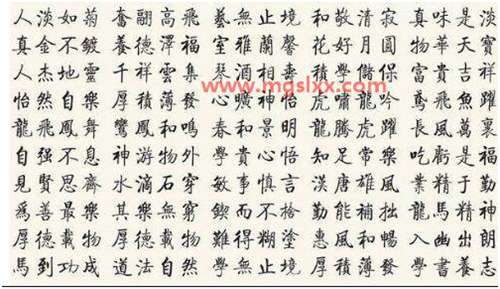 人淡如菊 奮翮高飛 藝無止境 和敬清寂 真味是淡
真金不鍍 養德澤福 室雅蘭馨 花好月圓 物華天寶
人杰地靈 千祥雲集 琴酒相壽 美學儲保 富貴吉祥
www.mgslxx.com
怡然自樂 厚積薄發 心曠神怡 虎嘯龍吟 鳶飛魚躍
龍飛鳳舞 鸞鳳和鳴 春和景明 龍騰虎躍 長風萬里
自强不息 神游物外 學貴心悟 知足常樂 吃虧是福
見賢思齊 水滴石穿 敏事慎言 漢唐雄風 業精于勤
爲善最樂 其樂無窮 鍥而不捨 勤能補拙 龍馬精神
厚德載物 厚德載物 難得糊塗 惠風和暢 入幽出朗
馬到功成 道法自然 學無止境 厚積薄發 學書養志